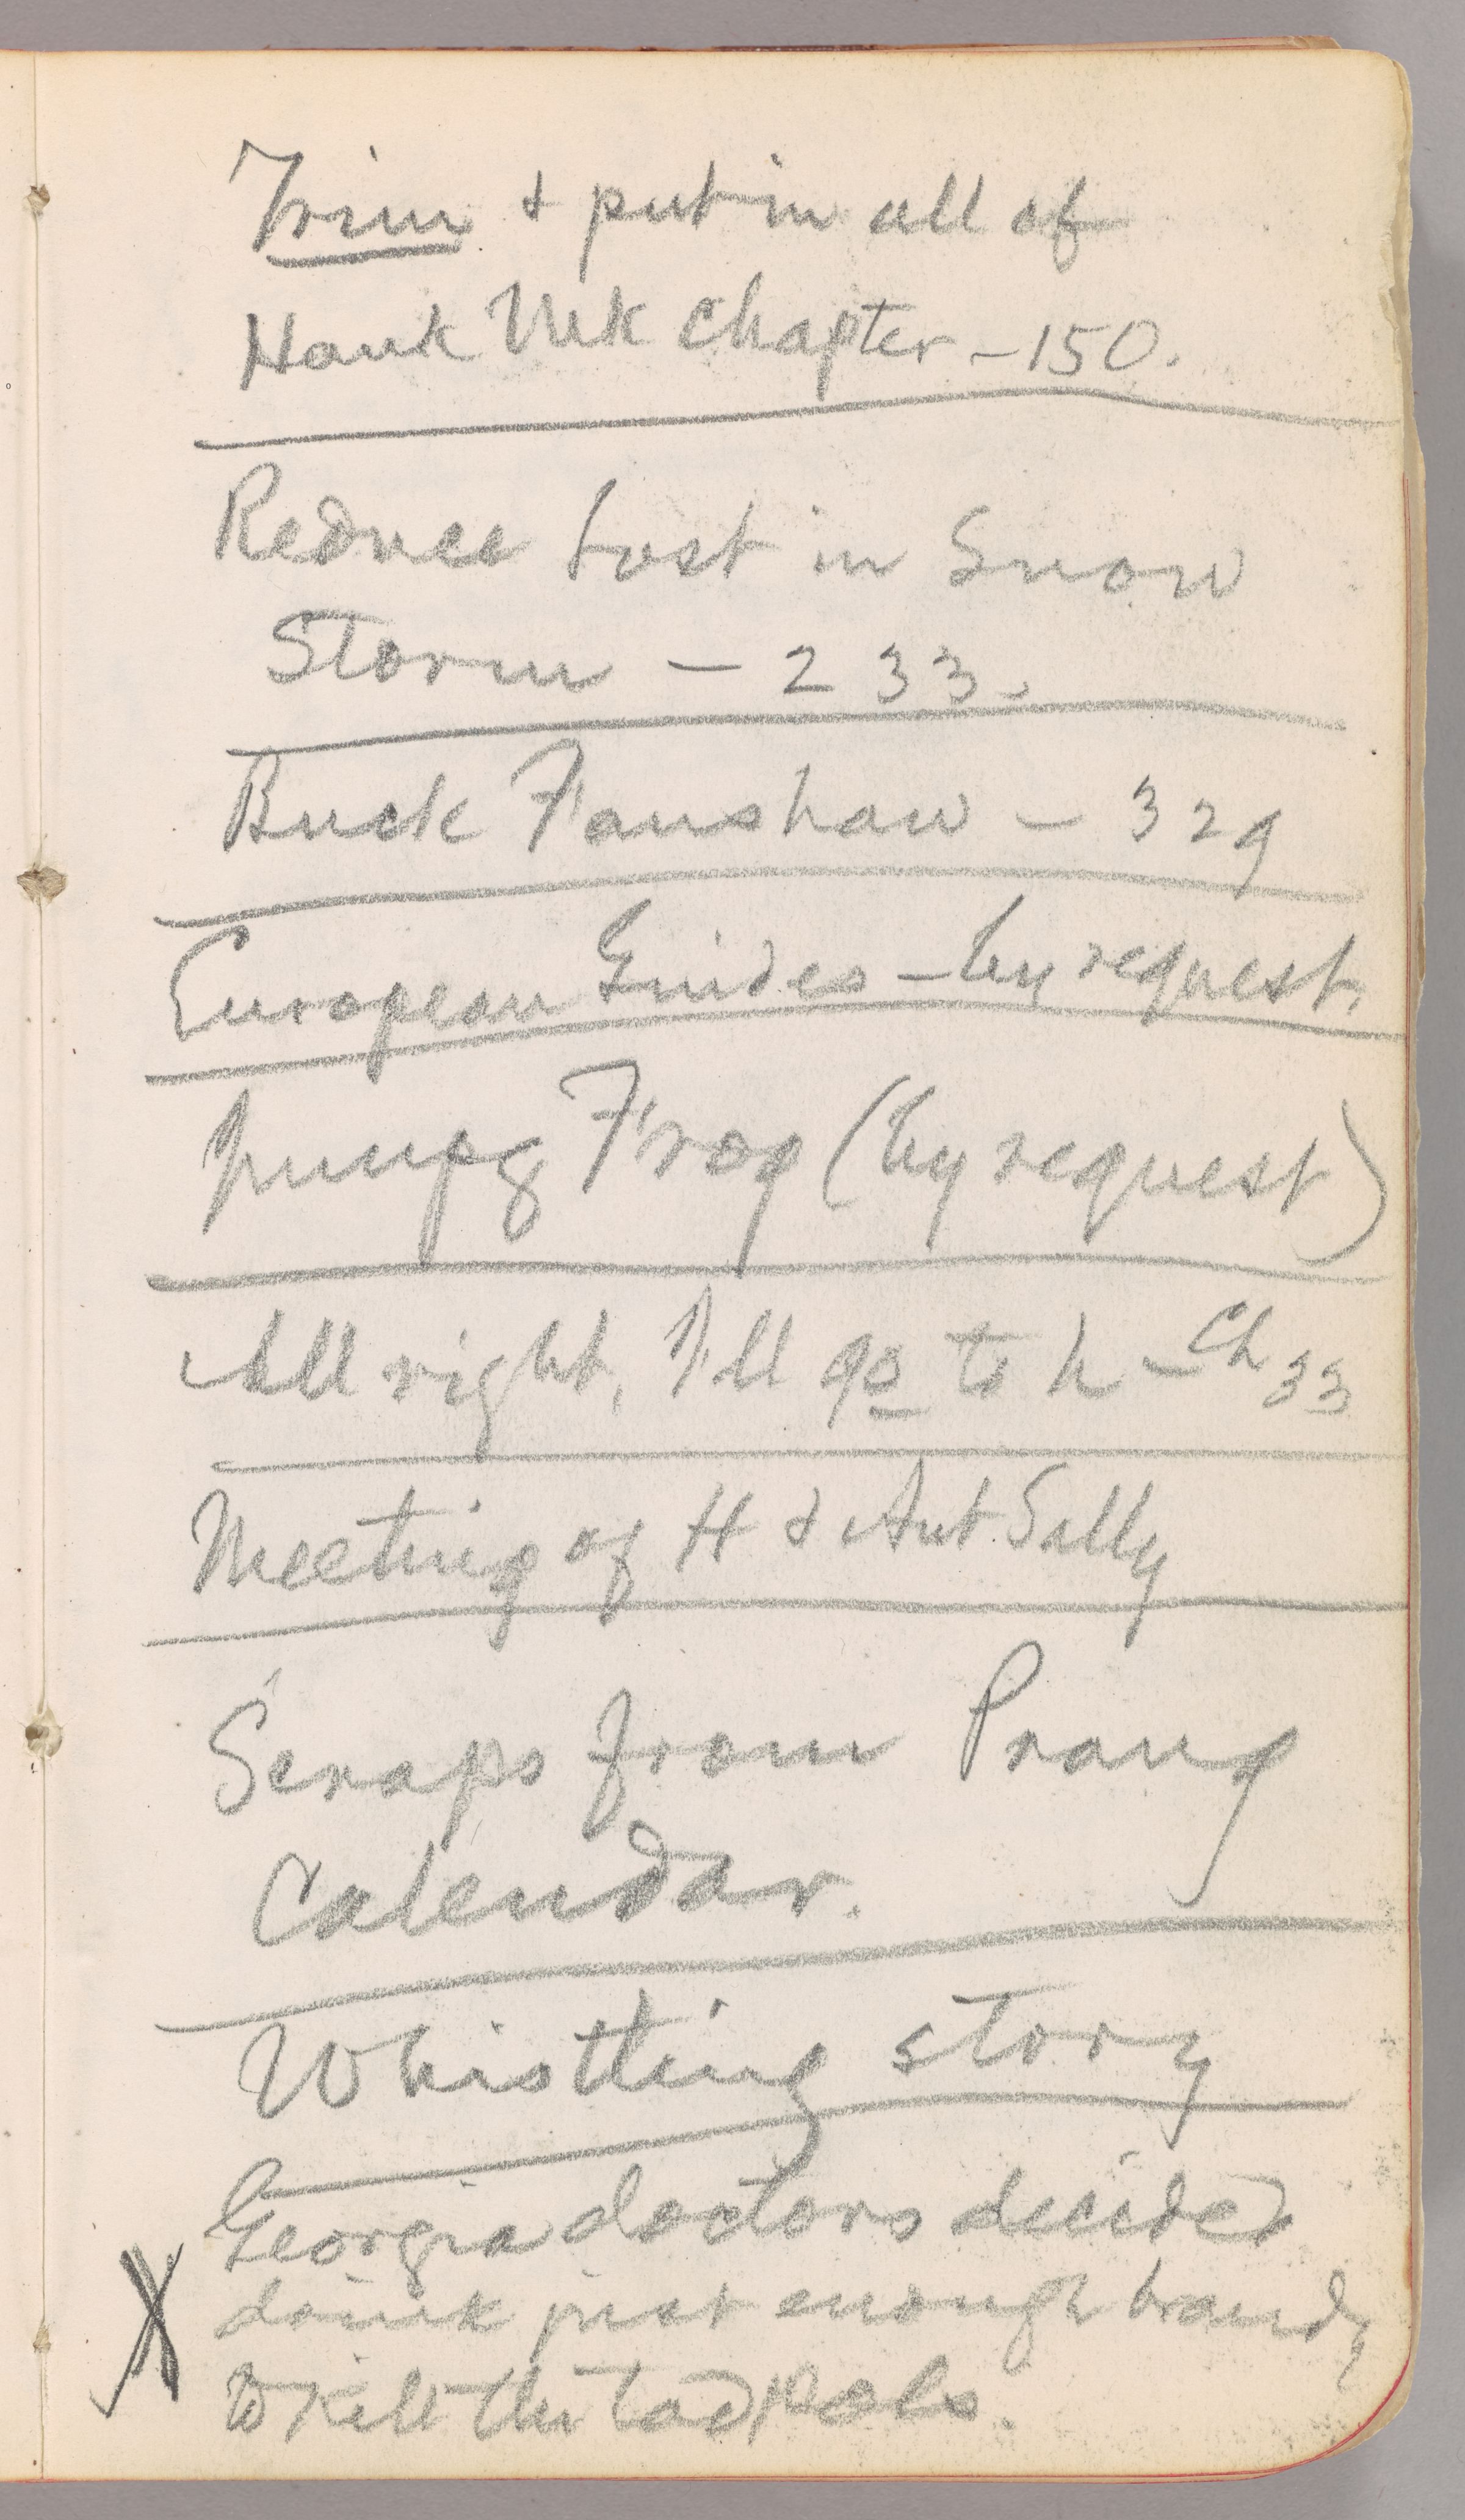 Trim & put in all of
Hank Monk chapter – 150.
Reduce Lost in Snow
Storm – 233.
Buck Fanshaw – 329
European Guides – by request.
Jumpg Frog (by request)
All right, I'll go to h – Ch 33
Meeting of H & Aut Sally
Scraps from Prang
Calendar.
Whistling story
Georgia doctors decided
X drink just enough brandy
to kill the tadpoles.